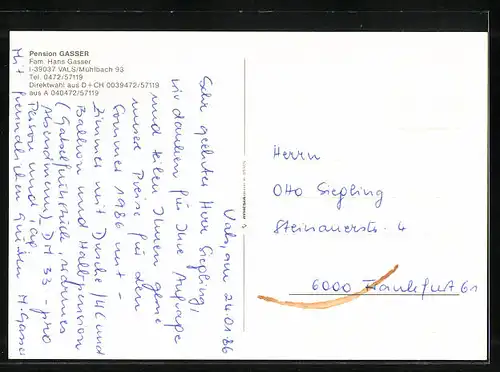 Pension GASSER
Fam. Hans Gasser
I-39037 VALS/Mühlbach 93
Tel. 0472/57119
Direktwahl aus D+CH 0039472/57119
aus A 040472/57119
Vals, am 24.01.86
Sehr geehrter Herr Siepling,
wir danken für Ihre Anfrage
und teilen Ihnen gerne
unsere Preise für den
Sommer 1986 mit -
Zimmer mit Dusche/WC und
Balkon und Halbpension
(Gabelfrühstück, warmes
Abendmenü) DM 33 - pro
Person und Tag
Mit freundlichen Grüßen H. Gasser
Herrn
Otto Siepling
Steinauerstr. 4
6000 Frankfurt 61